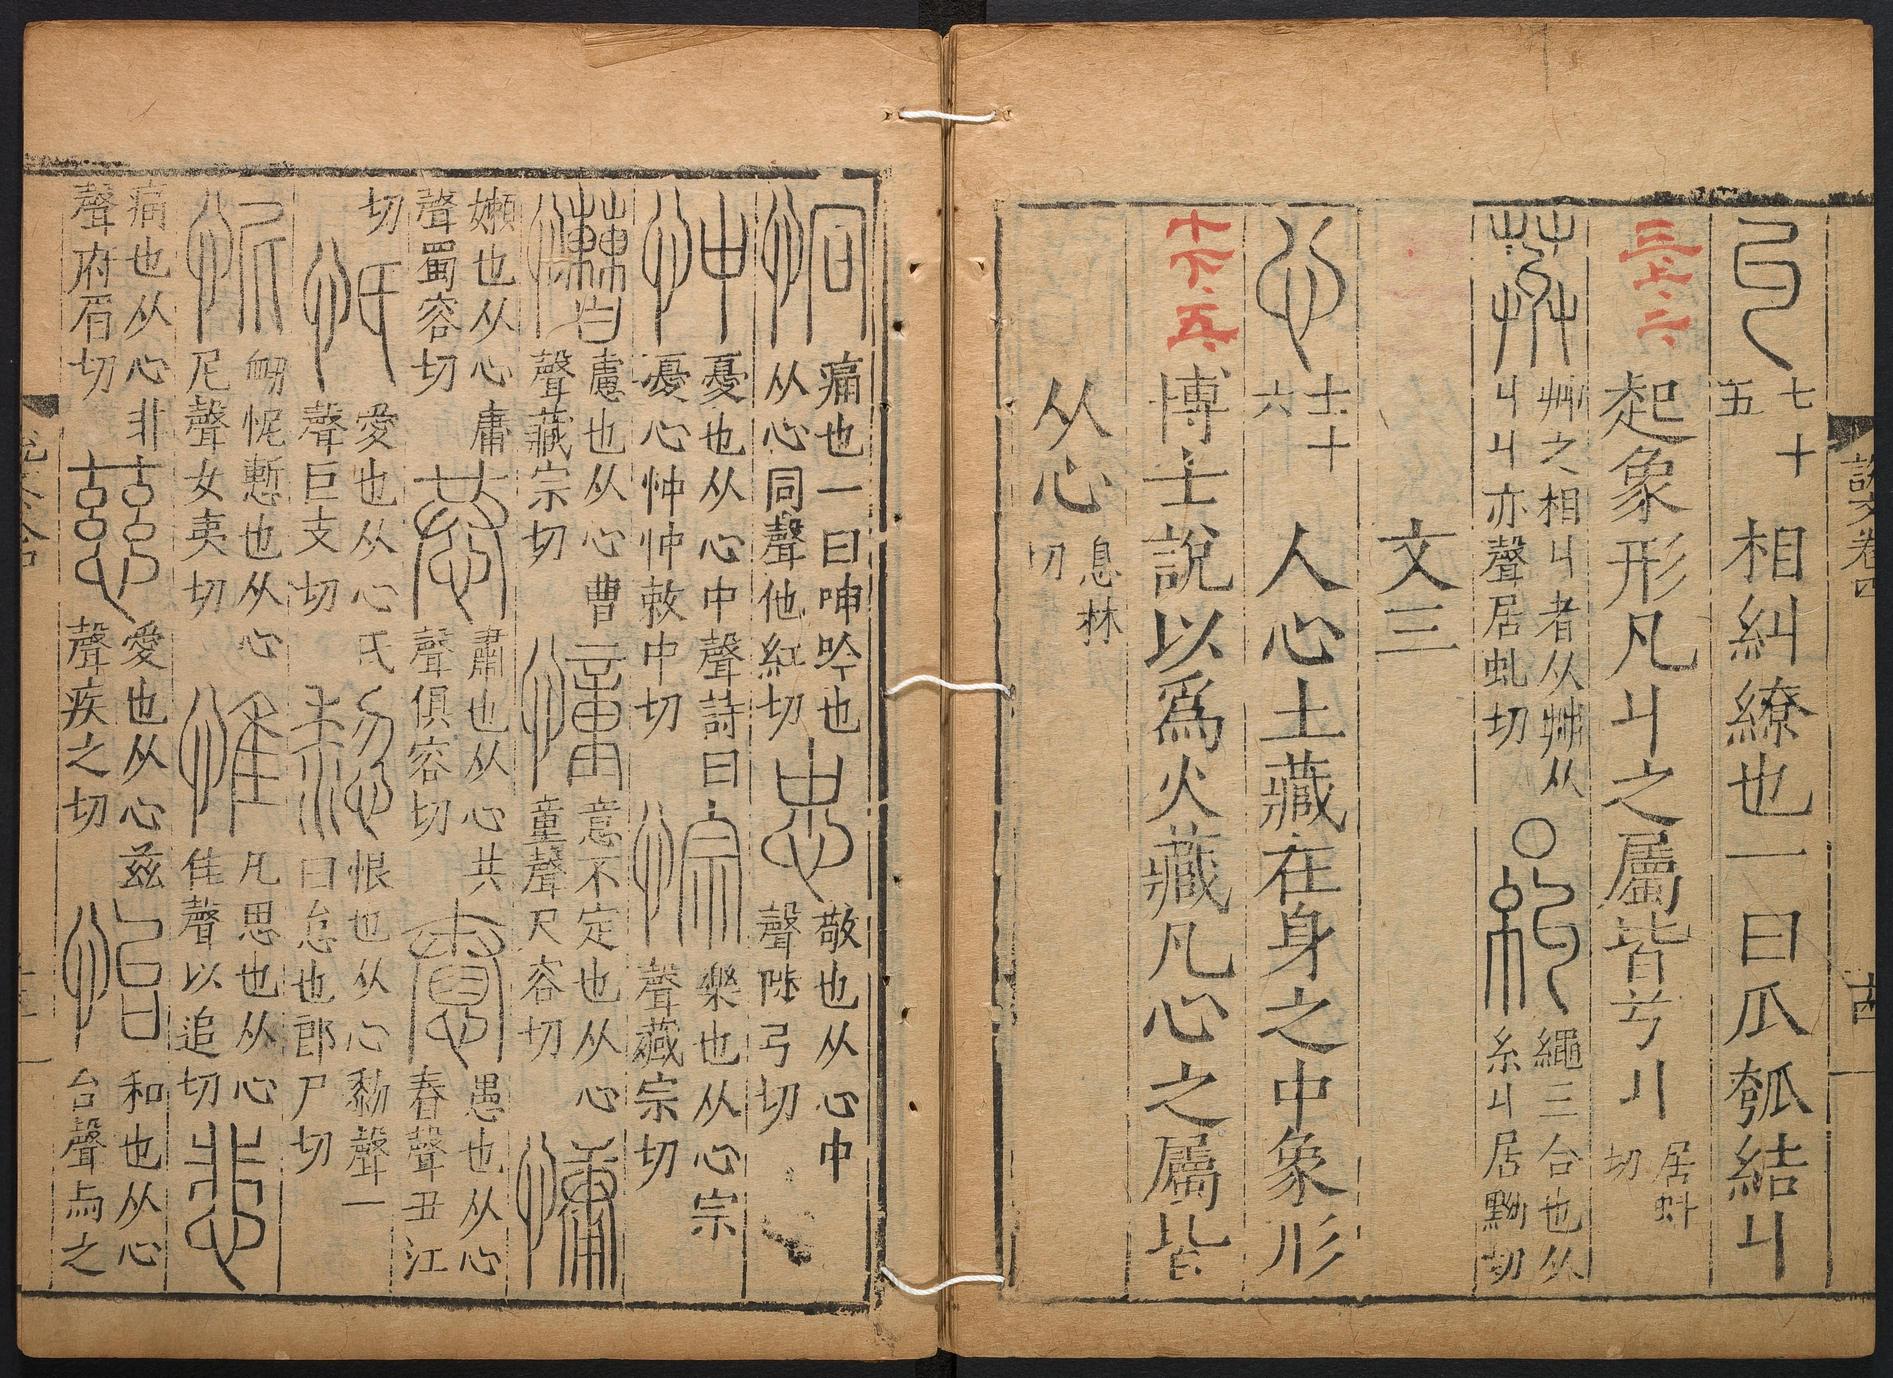 説文卷四 十四
丩 七十五 相糾繚也一曰瓜瓠結丩
三上二 起象形凡丩之屬皆从丩 居虯切
艸之相丩者从茻从丩丩亦聲居虬切 ○ 糾 繩三合也从糸丩居黝切
文三
心 七十六 人心土藏在身之中象形
十下五 博士說以爲火藏凡心之屬皆
从心 息林切
恫 痛也一曰呻吟也从心同聲他紅切 忠 敬也从心中聲陟弓切
忡 憂也从心中聲詩曰憂心忡忡敕中切 悰 樂也从心宗聲藏宗切
慒 慮也从心曹聲藏宗切 憧 意不定也从心童聲尺容切 慵
嬾也从心庸聲蜀容切 恭 肅也从心共聲俱容切 惷 愚也从心春聲丑江
切 忯 愛也从心氏聲巨支切 恨也从心㴝聲一曰怠也郎尸切
怩 衂怩慙也从心尼聲女夷切 惟 凡思也从心隹聲以追切 悲
痛也从心非聲府眉切 慈 愛也从心兹聲疾之切 怡 和也从心台聲与之